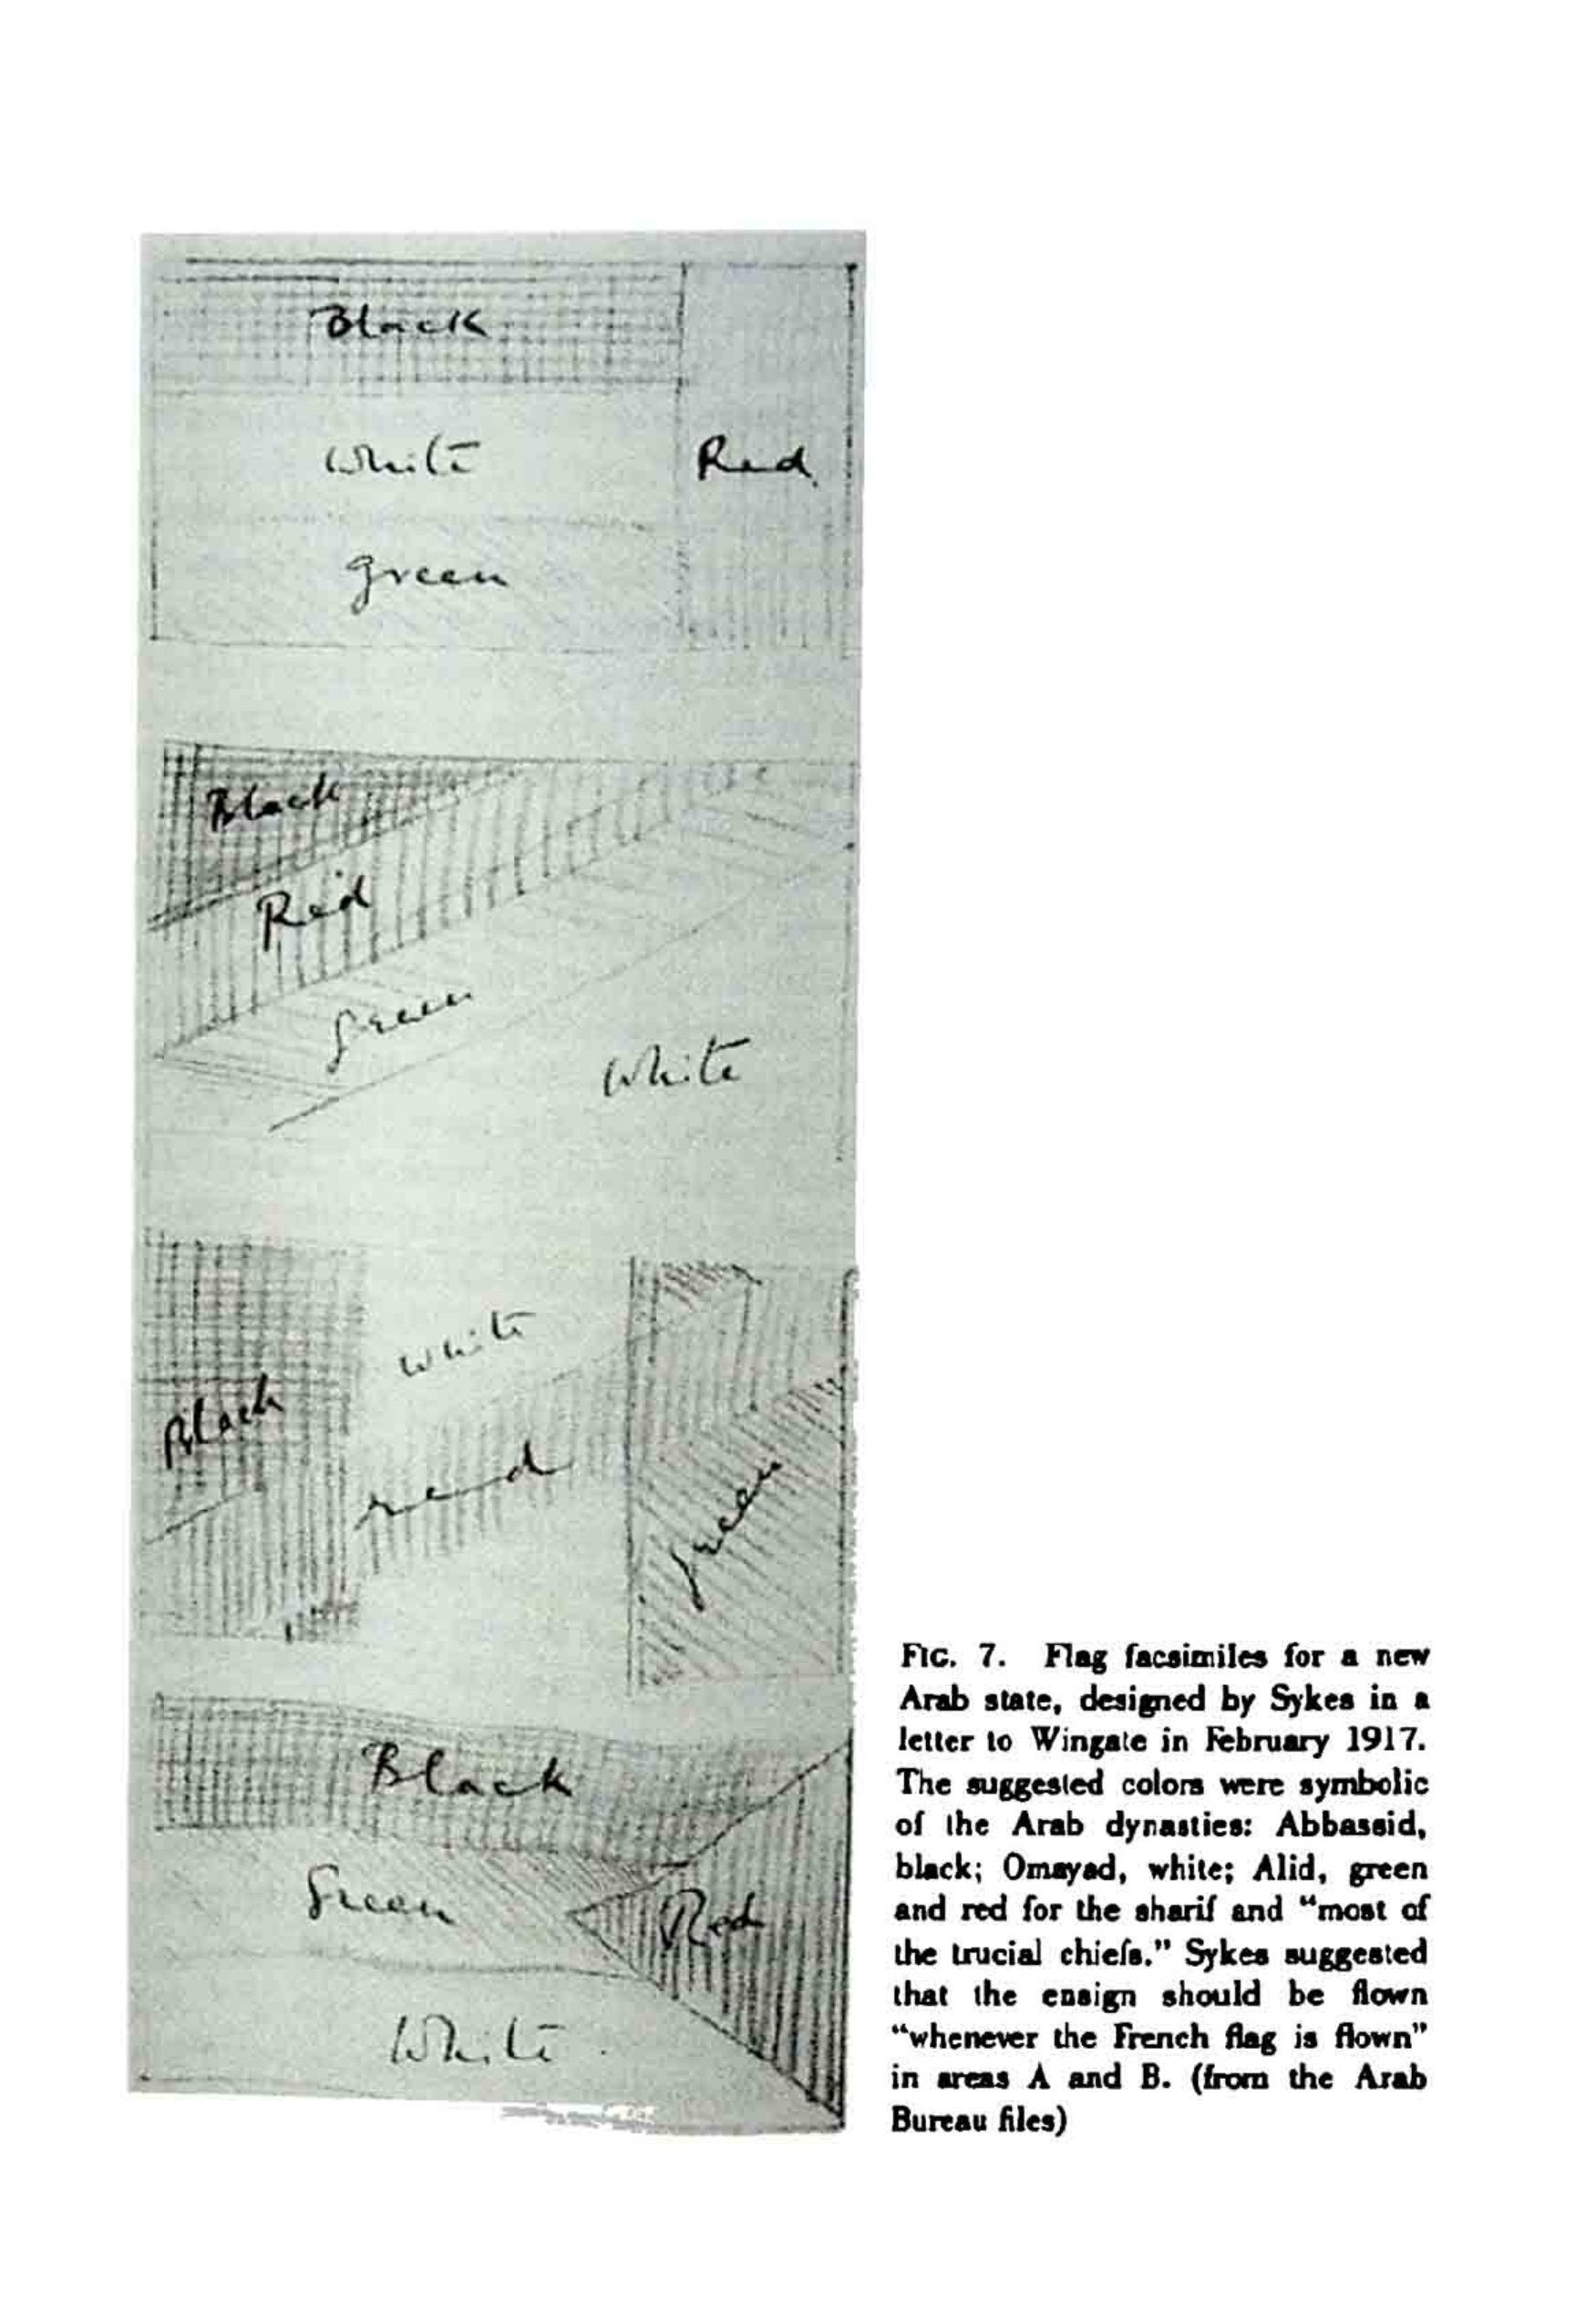 Black
White
Red
green
Black
Red
green
White
White
Black
red
green
Black
Green
Red
White
FIG. 7. Flag facsimiles for a new
Arab state, designed by Sykes in a
letter to Wingate in February 1917.
The suggested colors were symbolic
of the Arab dynasties: Abbassid,
black; Omayad, white; Alid, green
and red for the sharif and “most of
the trucial chiefs.” Sykes suggested
that the ensign should be flown
“whenever the French flag is flown”
in areas A and B. (from the Arab
Bureau files)